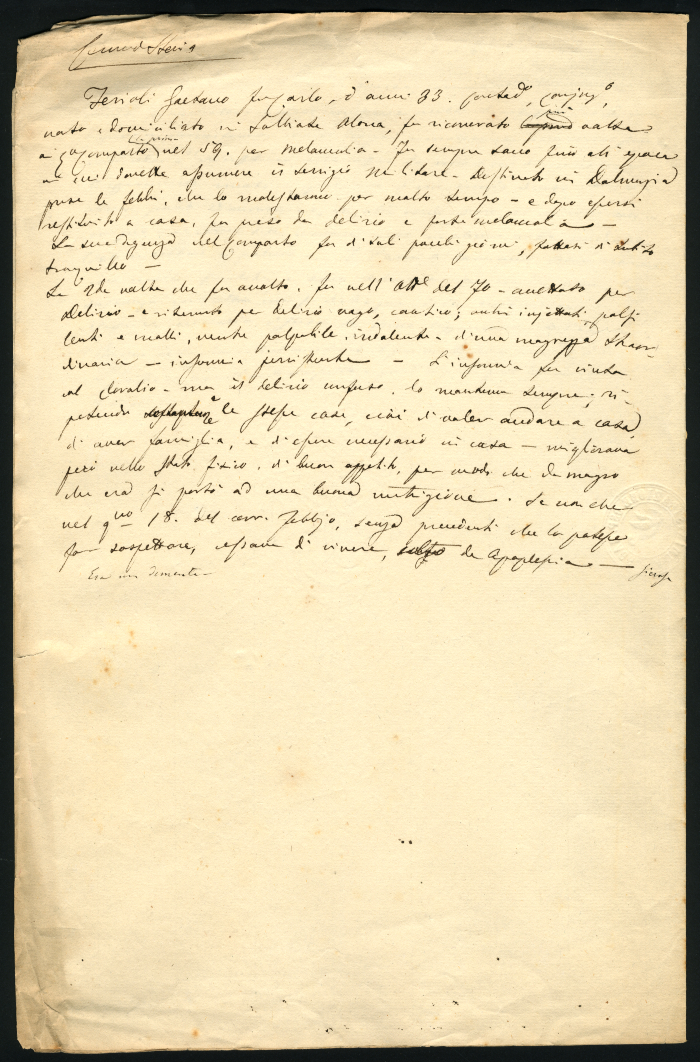 Cenni Storici
Terioli Gaetano fu Carlo, d'anni 33. contado, conjugo,
nato e domiciliato in Solbiate Olona, fu ricoverato altra
nel 59. per melancolia - Fu sempre sano fino all'epoca
in cui dovette assumere il servigio militare - Destinato in Dalmazia
prese le febbri, che lo molestarono per molto tempo - e dopo essersi
restituito a casa, fu preso da delirio e forte melancolia -
La sua degenza nel Comparto fu di soli pochi giorni, fattosi di subito
tranquillo -
La 2da volta che fu accolto, fu nell' Otte del 70 - per
Delirio - e ritenuto per delirio vago, caotico; occhi injettati, polsi
lenti e molli, ventre palpabile, indolente - d'una magrezza straor-
dinaria - insonnia persistente - L'insonnia fu vinta
col Cloralio - ma il delirio confuso, lo mantenne sempre; ri-
petendo le stesse cose, cioè di voler andare a casa,
di aver famiglia, e di essere necessario in casa - migliorava
però nello stato fisico, di buon appetito, per modo che da magro
che era si portò ad una buona nutrizione. Se non che
nel gno 18. del corr. Febbjo, senza precedenti che lo potesse
far sospettare, cessava di vivere, da Apoplessia - sierosa
Era un demente -